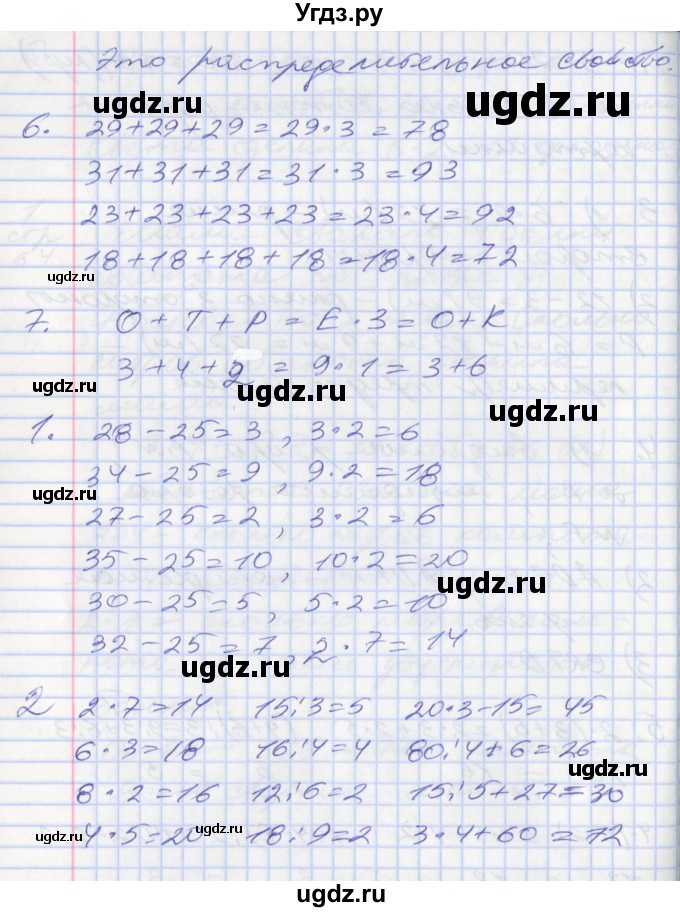 Угдз.ру
Это распределительное свойство.
ugdz.ru
ugdz.ru
6. 29+29+29=29·3=78
31+31+31=31·3=93
23+23+23+23=23·4=92
ugdz.ru
18+18+18+18=18·4=72
ugdz.ru
7. О+Т+Р=Е·3=О+К
ugdz.ru
3+4+2=9·1=3+6
ugdz.ru
ugdz.ru
1. 28-25=3, 3·2=6
34-25=9, 9·2=18
ugdz.ru
27-25=2, 3·2=6
35-25=10, 10·2=20
ugdz.ru
30-25=5, 5·2=10
32-25=7, 2·7=14
ugdz.ru
2 2·7=14 15:3=5 20·3-15=45
6·3=18 16:4=4 80:4+6=26
ugdz.ru
8·2=16 12:6=2 15:5+27=30
ugdz.ru
4·5=20 18:9=2 3·4+60=72
ugdz.ru